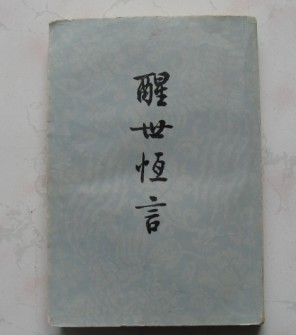 醒世恒言